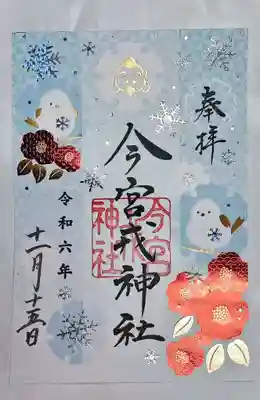 奉拝
今宮戎神社
今宮
神社
令和六年
十二月十五日